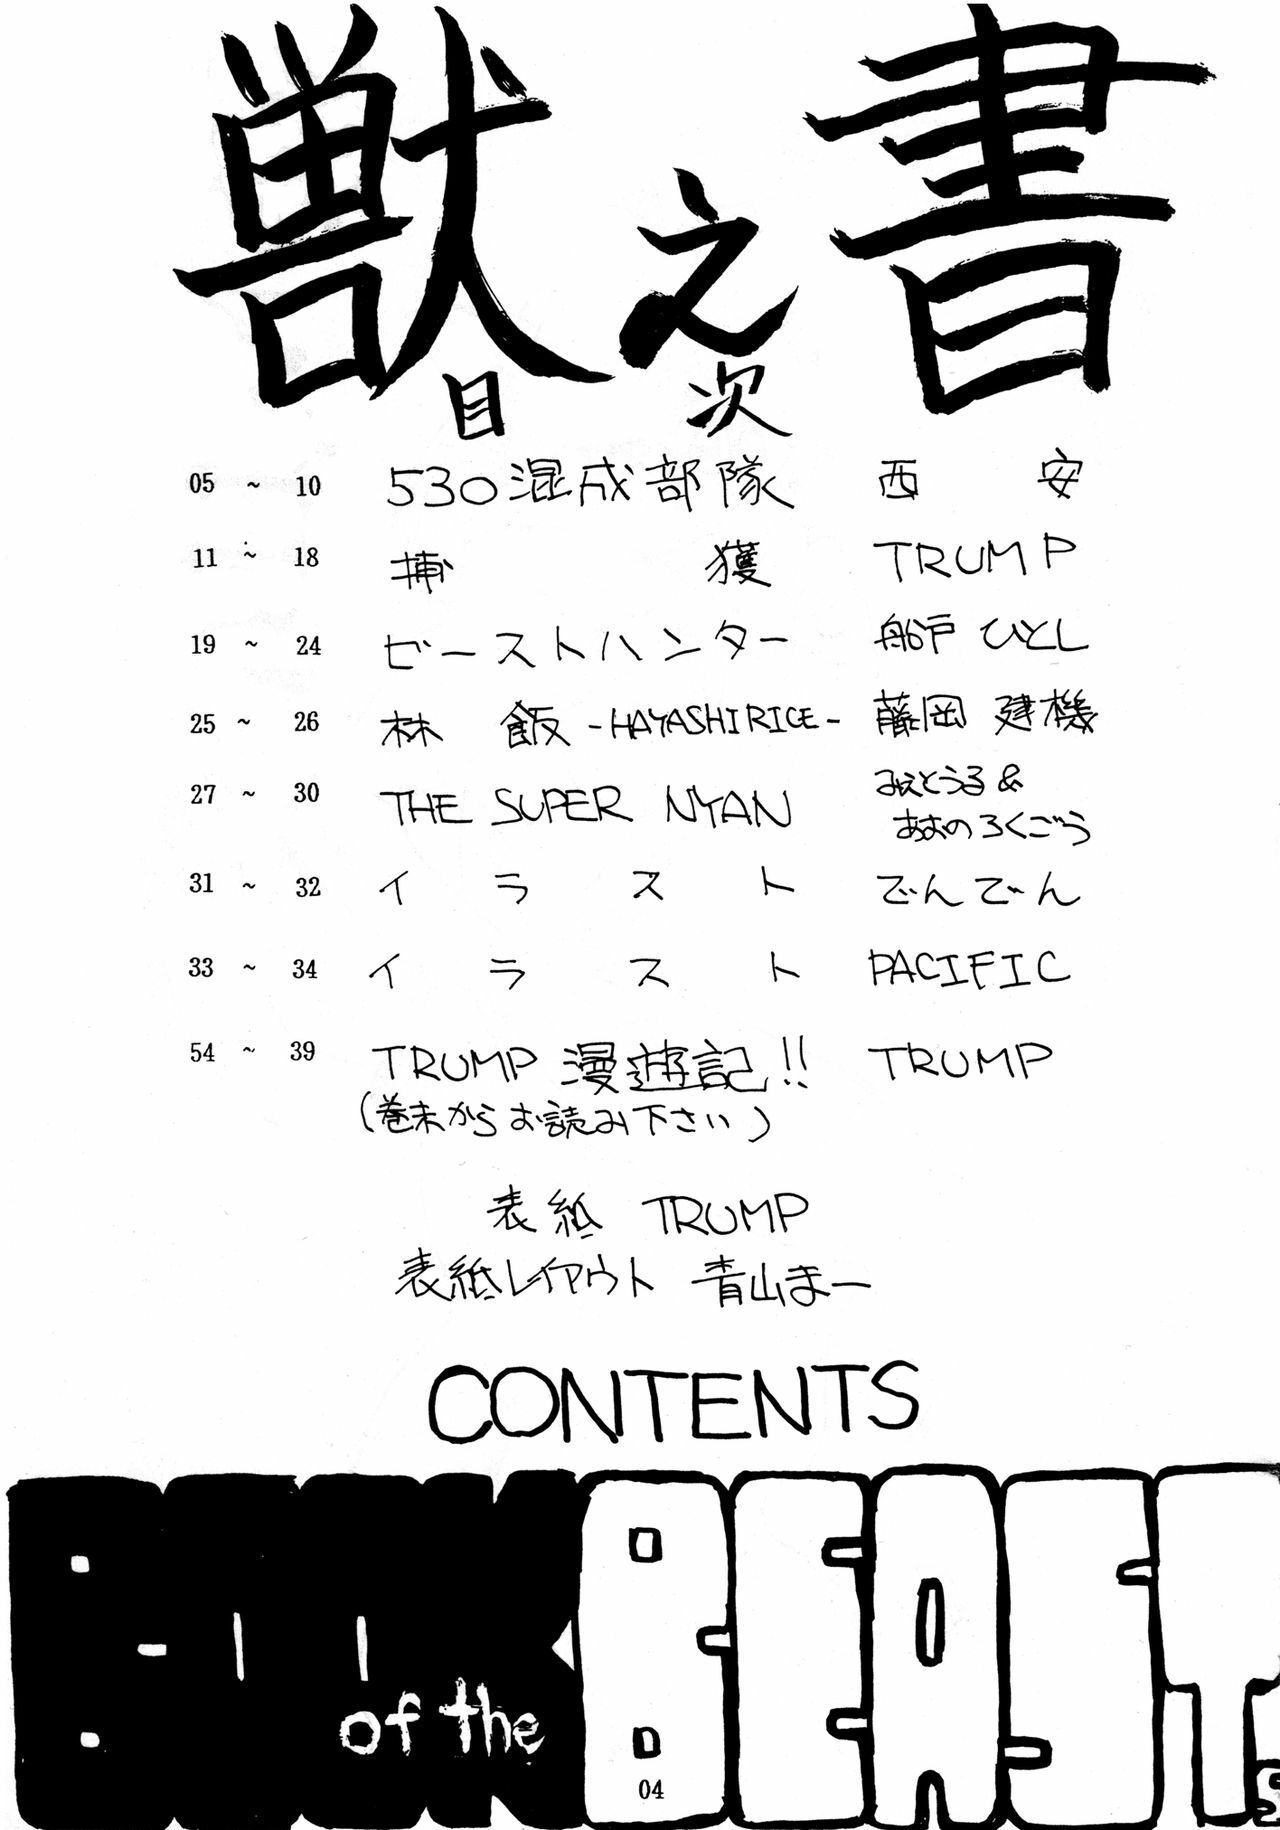 獣之書
目次
05 ~ 10 530混成部隊 西安
11 ~ 18 捕獲 TRUMP
19 ~ 24 ビーストハンター 船戸ひとし
25 ~ 26 林飯 -HAYASHI RICE- 藤岡建機
27 ~ 30 THE SUPER NYAN みぇとうる&
あおのろくごう
31 ~ 32 イラスト でんでん
33 ~ 34 イラスト PACIFIC
54 ~ 39 TRUMP 漫遊記!! TRUMP
(巻末からお読み下さい)
表紙 TRUMP
表紙レイアウト 青山まー
CONTENTS
BOOK of the BEASTs
04